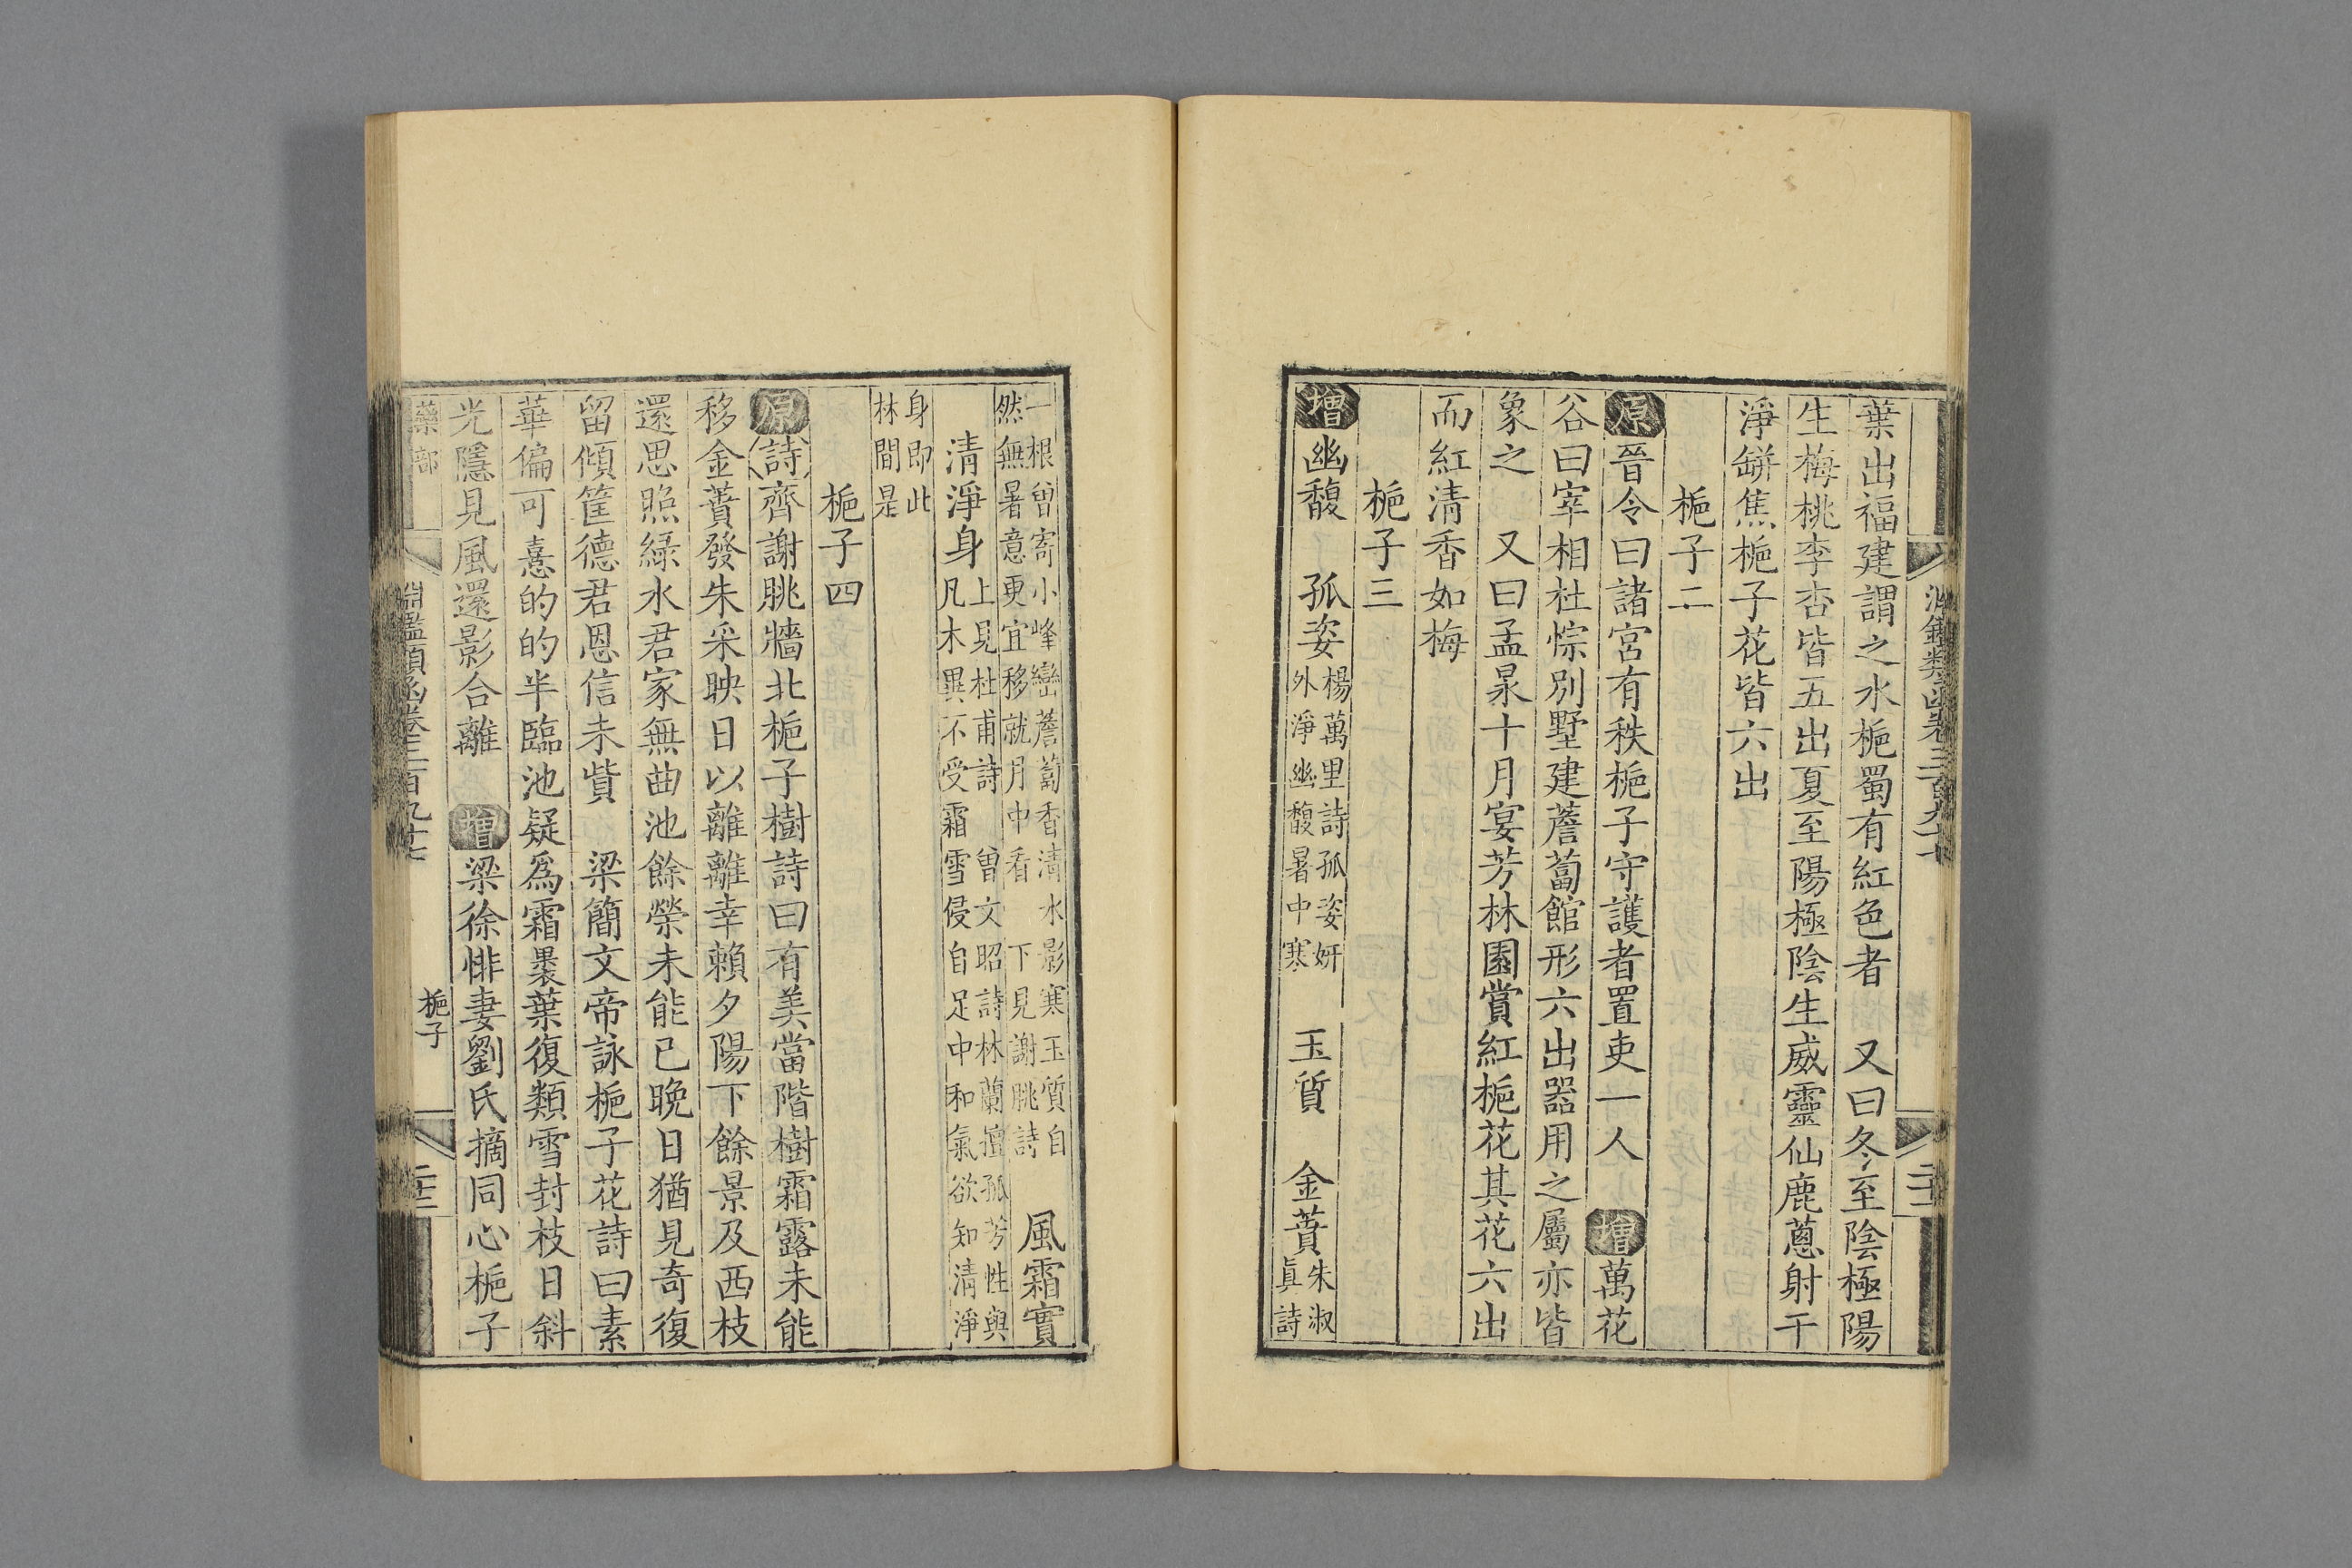 葉出福建謂之水梔蜀有紅色者　又曰冬至陰極陽
生梅桃李杏皆五出夏至陽極陰生威靈仙鹿蔥射干
淨缾焦梔子花皆六出
梔子二
原晉令曰諸宮有秩梔子守護者置吏一人　增萬花
谷曰宰相杜悰別墅建薝蔔館形六出器用之屬亦皆
象之　又曰孟㫤十月宴芳林園賞紅梔花其花六出
而紅清香如梅
梔子三
增幽馥　孤姿楊萬里詩孤姿妍
外淨幽馥暑中寒　玉質　金蕡朱淑
眞詩
一根曾寄小峰巒薝蔔香清水影寒玉質自
然無暑意更宜移就月中看　下見謝朓詩　風霜實
清淨身上見杜甫詩　曾文昭詩林蘭擅孤芳性與
凡木異不受霜雪侵自足中和氣欲知清淨
身即此
林間是
梔子四
原詩齊謝朓牆北梔子樹詩曰有美當階樹霜露未能
移金蕡發朱采映日以離離幸賴夕陽下餘景及西枝
還思照綠水君家無曲池餘榮未能已晚日猶見奇復
留傾筐德君恩信未貲　梁簡文帝詠梔子花詩曰素
華偏可憙的的半臨池疑爲霜裹葉復類雪封枝日斜
光隱見風還影合離　增梁徐悱妻劉氏摘同心梔子
藥部
淵鑑類函卷三百九十七
梔子